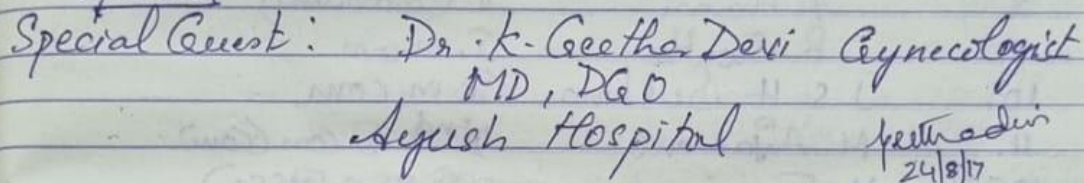 Special Guest: Dr. K. Geetha Devi Gynecologist
MD, DGO
Ayush Hospital Geethadevi
24/8/17